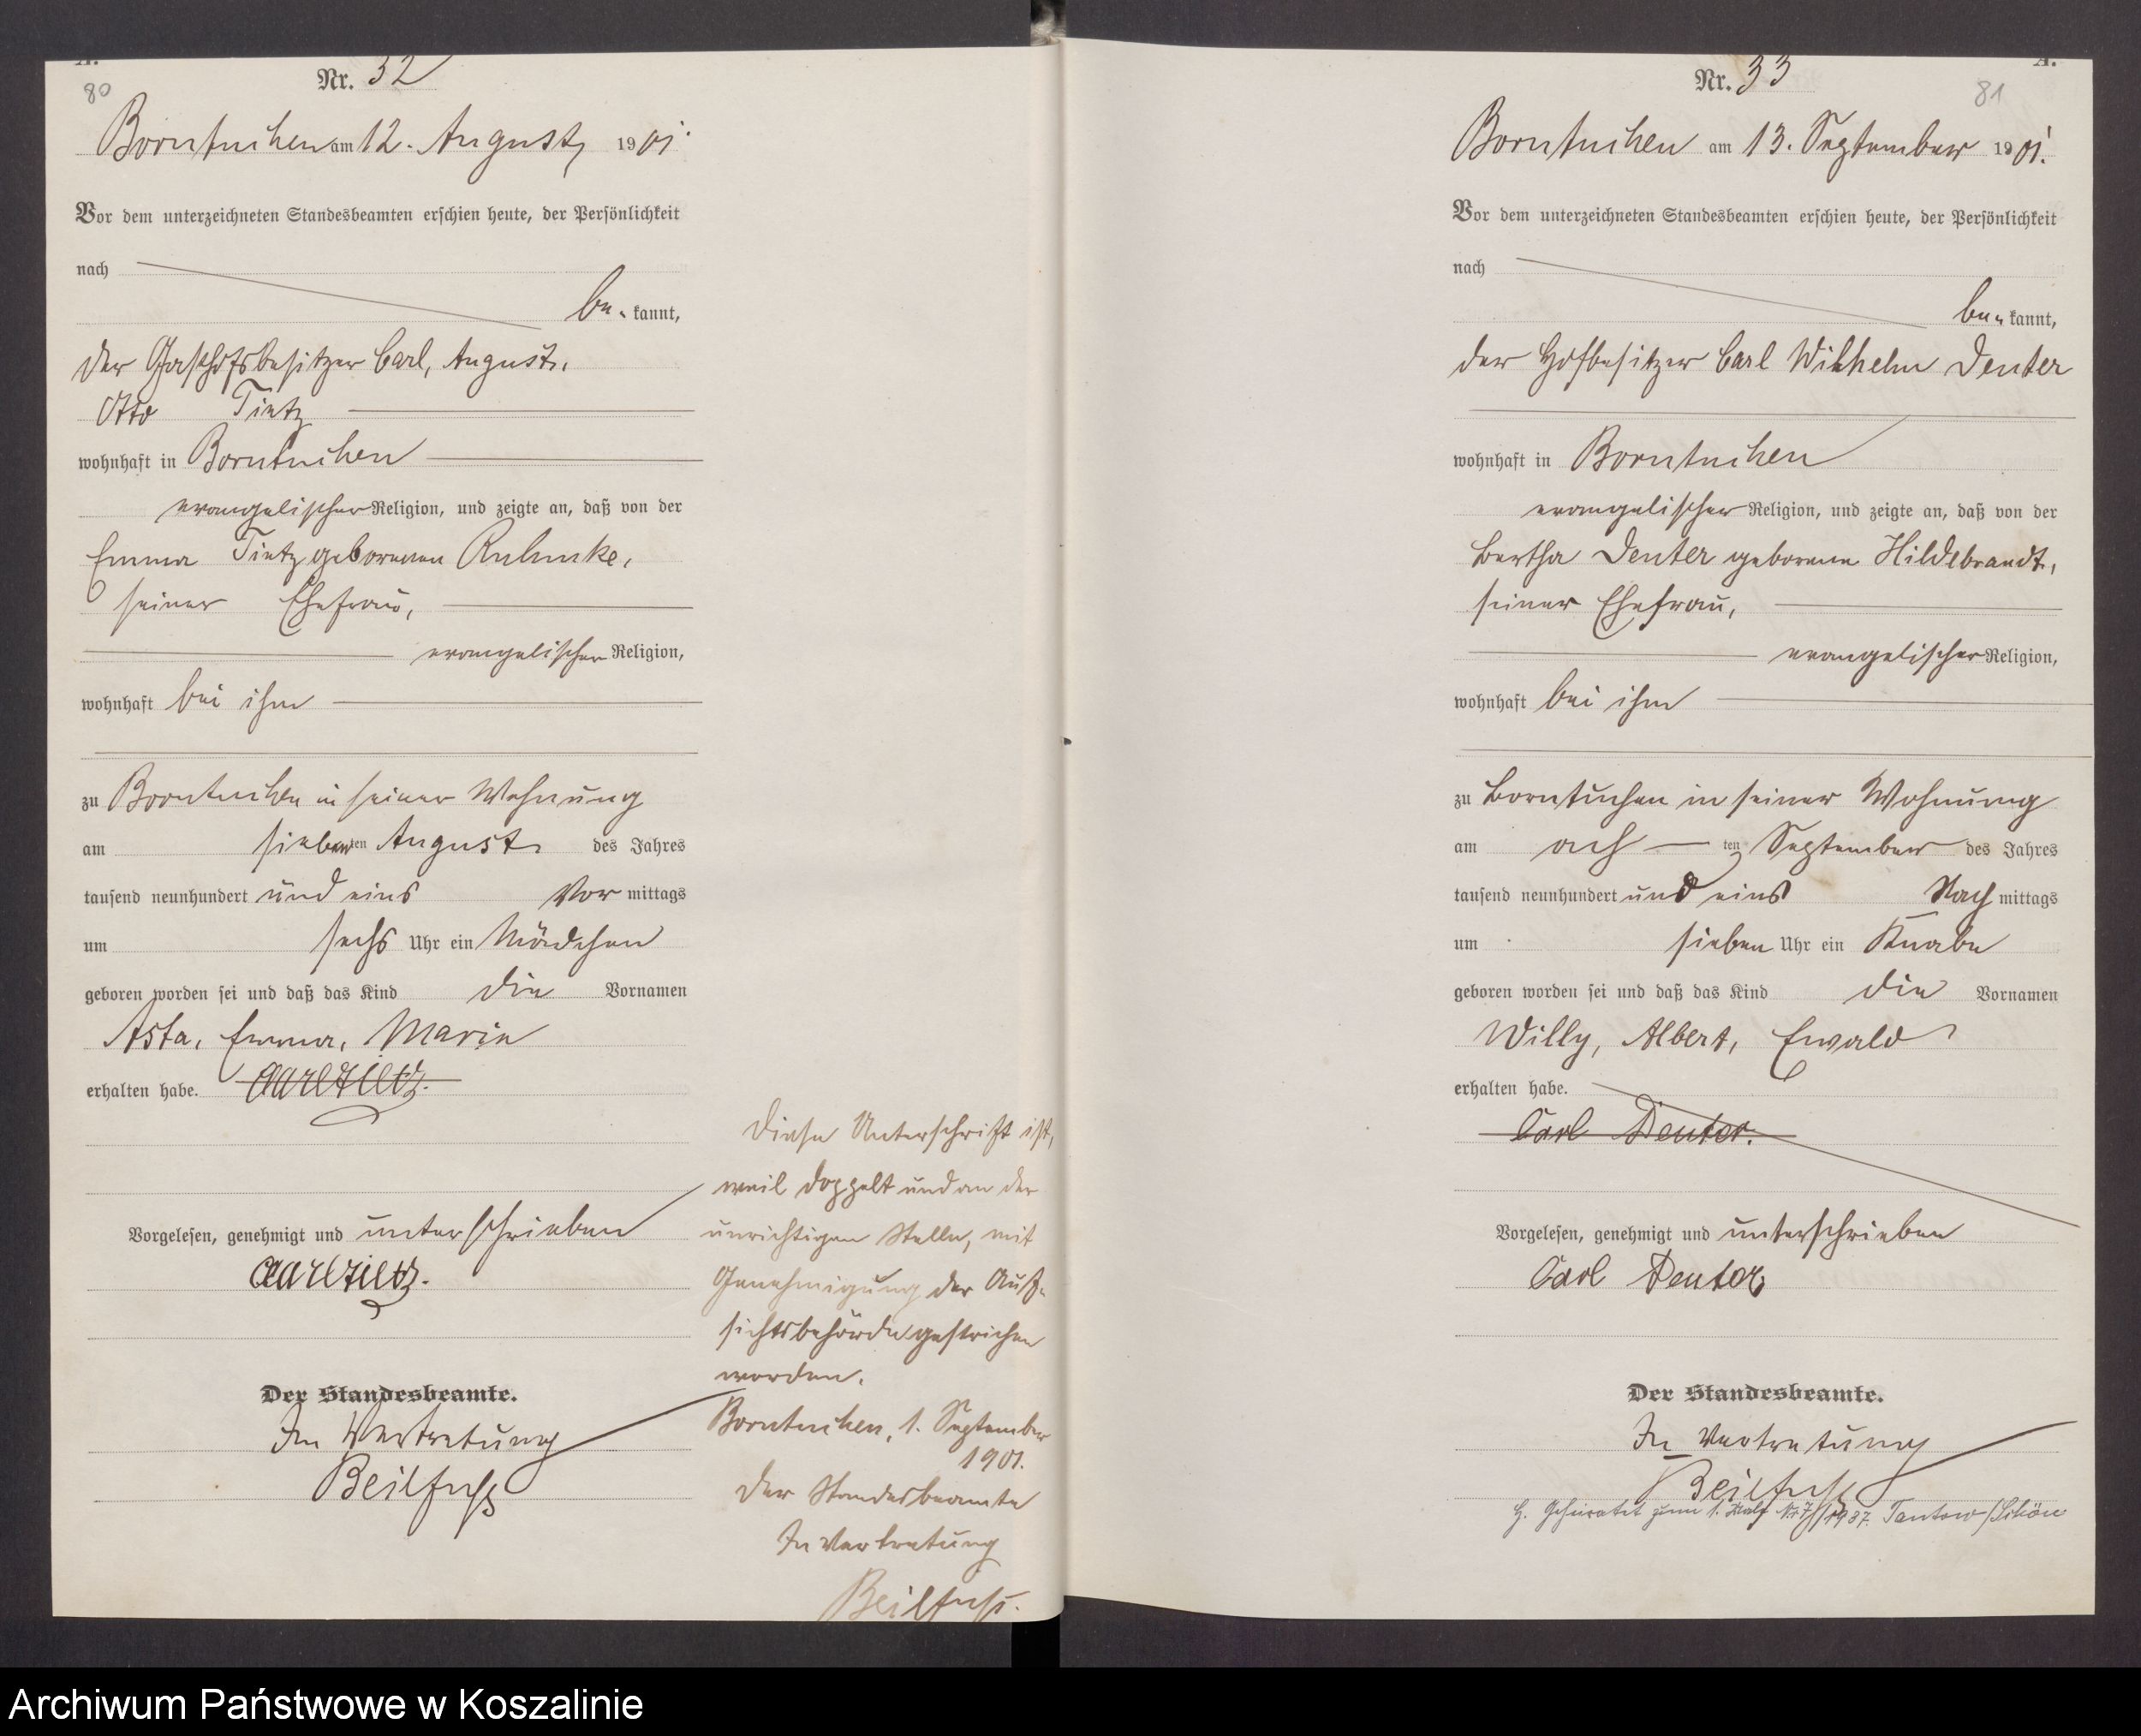 A.
80
Nr. 32
Borntuchen am 12. August 1901.
Vor dem unterzeichneten Standesbeamten erschien heute, der Persönlichkeit
nach
be- kannt,
der Gasthofsbesitzer Carl, August,
Otto Tietz
wohnhaft in Borntuchen
evangelischer Religion, und zeigte an, daß von der
Emma Tietz geborenen
seiner Ehefrau,
evangelischer Religion,
wohnhaft bei ihm
zu Borntuchen in seiner Wohnung
am siebenten August des Jahres
tausend neunhundert und eins Vor mittags
um sechs Uhr ein Mädchen
geboren worden sei und daß das Kind die Vornamen
Asta, Emma, Marie
erhalten habe. Carl Tietz.
Vorgelesen, genehmigt und unterschrieben
Carl Tietz.
Der Standesbeamte.
In Vertretung
Beilfuß
Diese Unterschrift ist,
weil doppelt und an der
unrichtigen Stelle, mit
Genehmigung der Auf-
sichtsbehörde gestrichen
worden.
Borntuchen, 1. September
1901.
Der Standesbeamte
In Vertretung
Beilfuß.
A.
81
Nr. 33
Borntuchen am 13. September 1901.
Vor dem unterzeichneten Standesbeamten erschien heute, der Persönlichkeit
nach
be- kannt,
der Hofbesitzer Carl Wilhelm Denter
wohnhaft in Borntuchen
evangelischer Religion, und zeigte an, daß von der
Bertha Denter geborene Hildebrandt,
seiner Ehefrau,
evangelischer Religion,
wohnhaft bei ihm
zu Borntuchen in seiner Wohnung
am ach ten September des Jahres
tausend neunhundert und eins Nach mittags
um sieben Uhr ein Knabe
geboren worden sei und daß das Kind die Vornamen
Willy, Albert, Ewald
erhalten habe.
Carl Denter.
Vorgelesen, genehmigt und unterschrieben
Carl Denter
Der Standesbeamte.
In Vertretung
Beilfuß
Geheiratet zum 1. Mal Nr 7/1937. Tantow
Archiwum Państwowe w Koszalinie